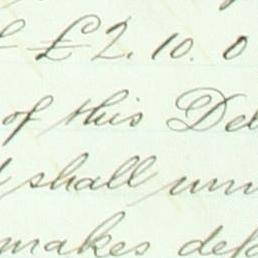 £2. 10. 0
of this Deb
shall un
makes def